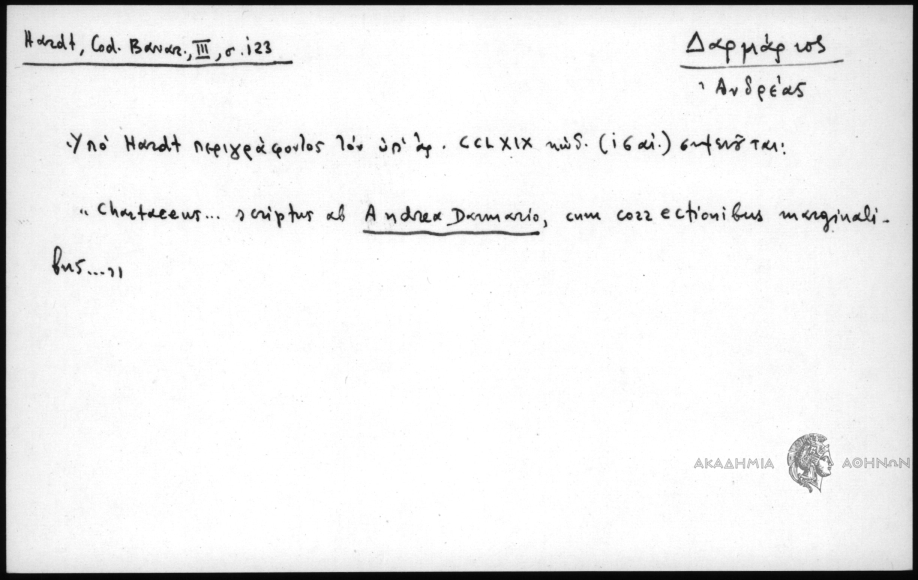 Hardt, Cod. Bavar., III, σ. 123
Δαρμάριος
Ἀνδρέας
Ὑπὸ Hardt περιγράφοντος τὸν ὑπ' ἀρ. CCLXIX κώδ. (ις αἰ.) σημειοῦται:
"Chartaceus... scriptus ab Andrea Darmario, cum correctionibus marginali-
bus..."
ΑΚΑΔΗΜΙΑ ΑΘΗΝΩΝ